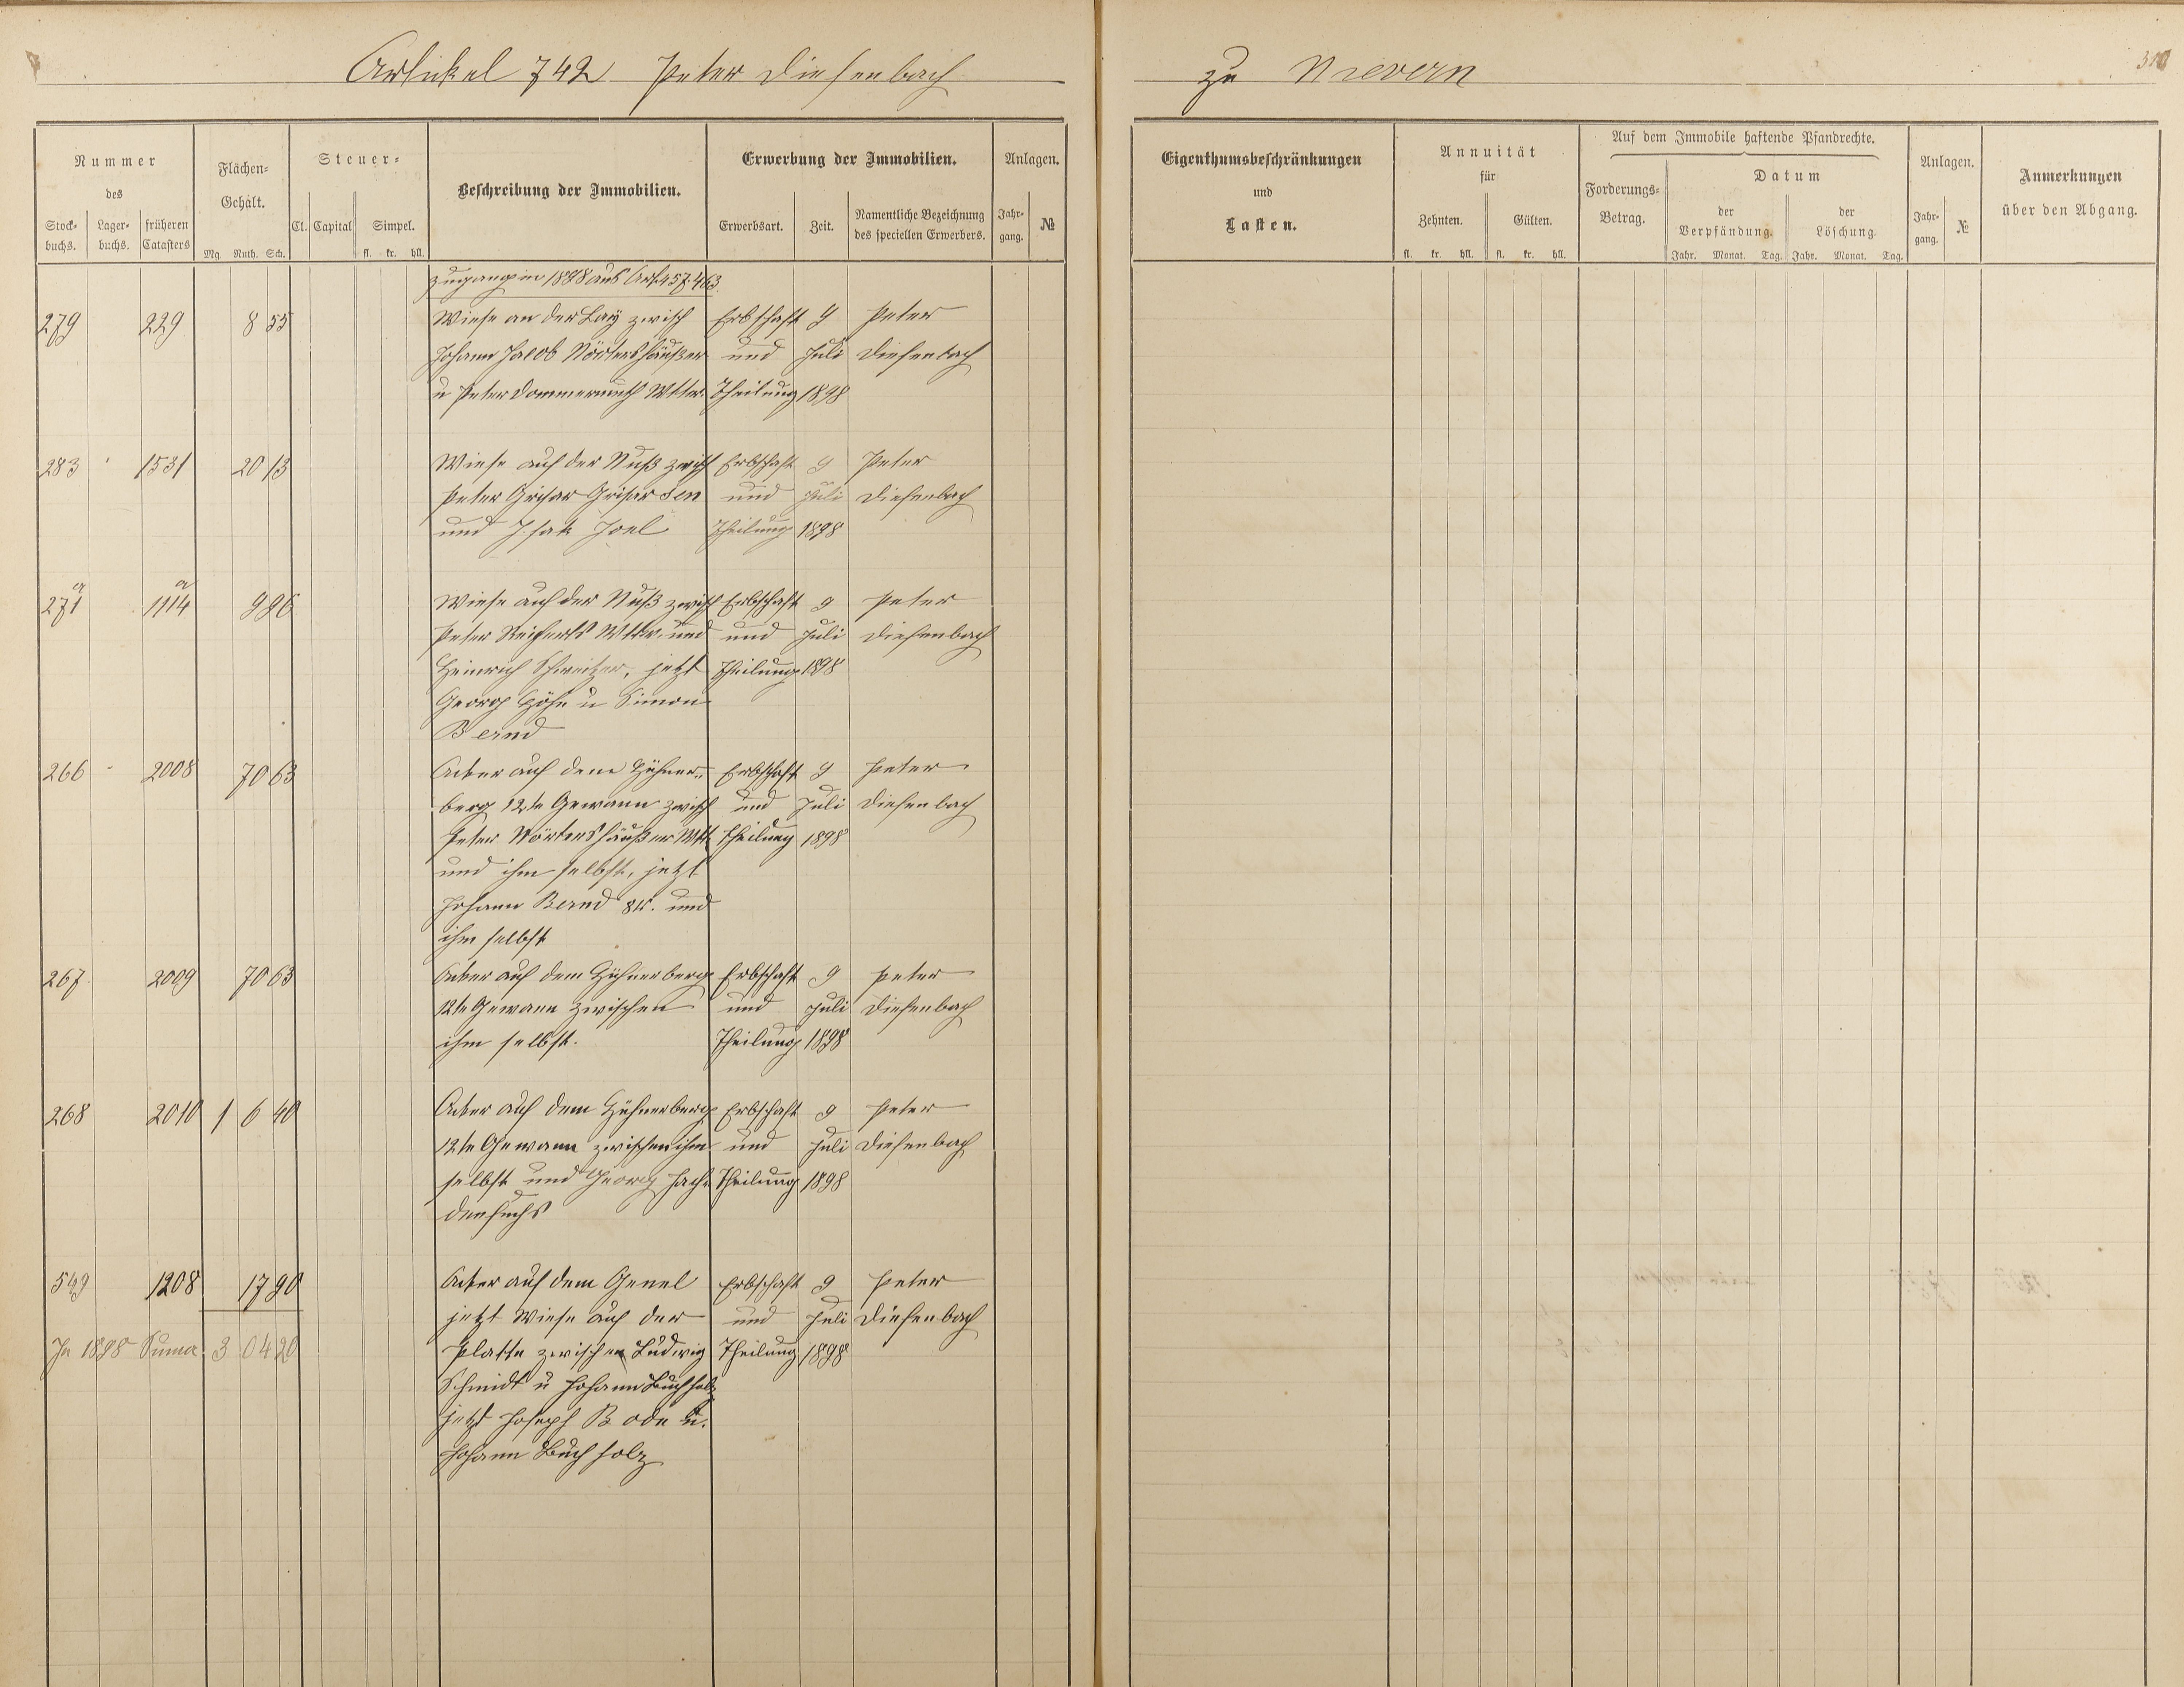 Artikel 742 Peter Diefenbach
zu Nievern
Nummer
des
Stock-buchs.
Lager-buchs.
früheren Catasters
Flächen-Gehalt.
Mg. Ruth. Sch.
Steuer-
Cl. Capital Simpel.
fl. kr. hll.
Beschreibung der Immobilien.
Erwerbung der Immobilien.
Erwerbsart. Zeit.
Namentliche Bezeichnung des speciellen Erwerbers.
Anlagen.
Jahr-gang. №
Eigenthumsbeschränkungen
und
Lasten.
Annuität
für
Zehnten. Gülten.
fl. kr. hll. fl. kr. hll.
Auf dem Immobile haftende Pfandrechte.
Forderungs-Betrag.
Datum
der Verpfändung.
der Löschung.
Jahr. Monat. Tag. Jahr. Monat. Tag.
Anlagen.
Jahr-gang. №
Anmerkungen
über den Abgang.
Zugang in 1898 aus Art. 457. 463.
279 229 8 55 Wiese an der Lay zwisch Erbschaft 9 Peter
Johann Jacob Nörtershäußer und Juli Diefenbach
u Peter Dommermuth Wttw. Theilung 1898
283 1531 20 13 Wiese auf der Nuß zwisch Erbschaft 9 Peter
Peter Grisar Grisar sen und Juli Diefenbach
und Isak Joel Theilung 1898
271 a 1114 a 9 96 Wiese auf der Nuß zwisch Erbschaft 9 Peter
Peter Reiferts Wttw. und und Juli Diefenbach
Heinrich Schweitzer, jetzt Theilung 1898
Georg Höhn u Simon
Bernd
266 2008 70 63 Acker auf dem Hühner- Erbschaft 9 Peter
berg 12te Gewann zwisch und Juli Diefenbach
Peter Nörtershäußer Wtt. Theilung 1898
und ihm selbst, jetzt
Johann Bernd 8tr. und
ihm selbst
267 2009 70 63 Acker auf dem Hühnerberg Erbschaft 9 Peter
12te Gewann zwischen und Juli Diefenbach
ihm selbst. Theilung 1898
268 2010 1 6 40 Acker auf dem Hühnerberg Erbschaft 9 Peter
12te Gewann zwischen ihm und Juli Diefenbach
selbst und Georg Theilung 1898
549 1208 17 90 Acker auf dem Genel Erbschaft 9 Peter
jetzt Wiese auf der und Juli Diefenbach
In 1898 Suma 3 04 20 Platte zwischen Ludwig Theilung 1898
Schmidt u Johann Buchholz
jetzt Joseph Bode u.
Johann Buchholz